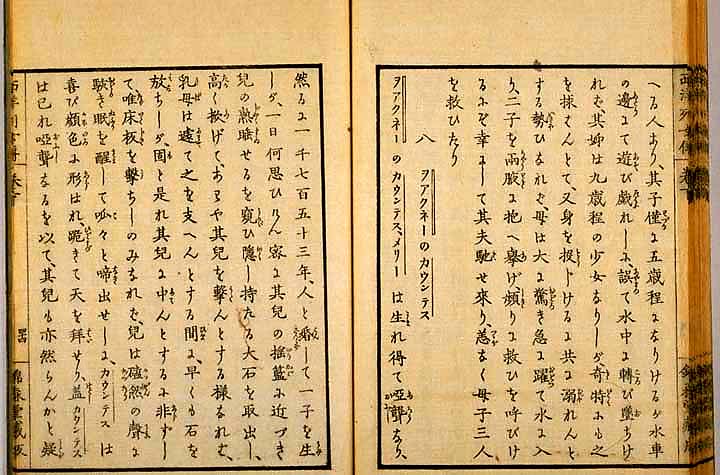 へる人あり、其子僅に五歳程になりけるが水車
の邊にて遊び戯れしに、誤て水中に轉び墜ちけ
れば其姉は九歳程の少女なりしが奇特にも之
を捄さんとて、又身を投じけるに共に溺れんと
する勢ひなれば、母は大に驚き急に躍て水に入
り、二子を兩腋に抱へ擧げ、頻りに救ひを呼びけ
るに幸にして其夫馳せ來り、恙なく母子三人
を救ひたり
八 ヲアクネーのカウンテス
ヲアクネーのカウンテス、メリーは生れ得て啞聾なり、
然るに一千七百五十三年、人と婚して一子を生
しが、一日何思ひけん密に其兒の搖籃に近づき
兒の熟睡せるを窺ひ隱し持たる大石を取出し、
高く揚げて、あはや其兒を擊んとする樣なれば、
乳母は遽て之を支へんとする間に、早くも石を
放ちしが、固と是れ其兒に中んとするに非ずし
て、唯床板を擊ちしのみなれば、兒は磕然の聲に
駭き眠を醒して呱々と啼出せしに、カウンテスは
喜び顏色に形はれ跪きて天を拜せり、蓋カウンテス
は已れ啞聾なるを以て、其兒も亦然らんかと疑